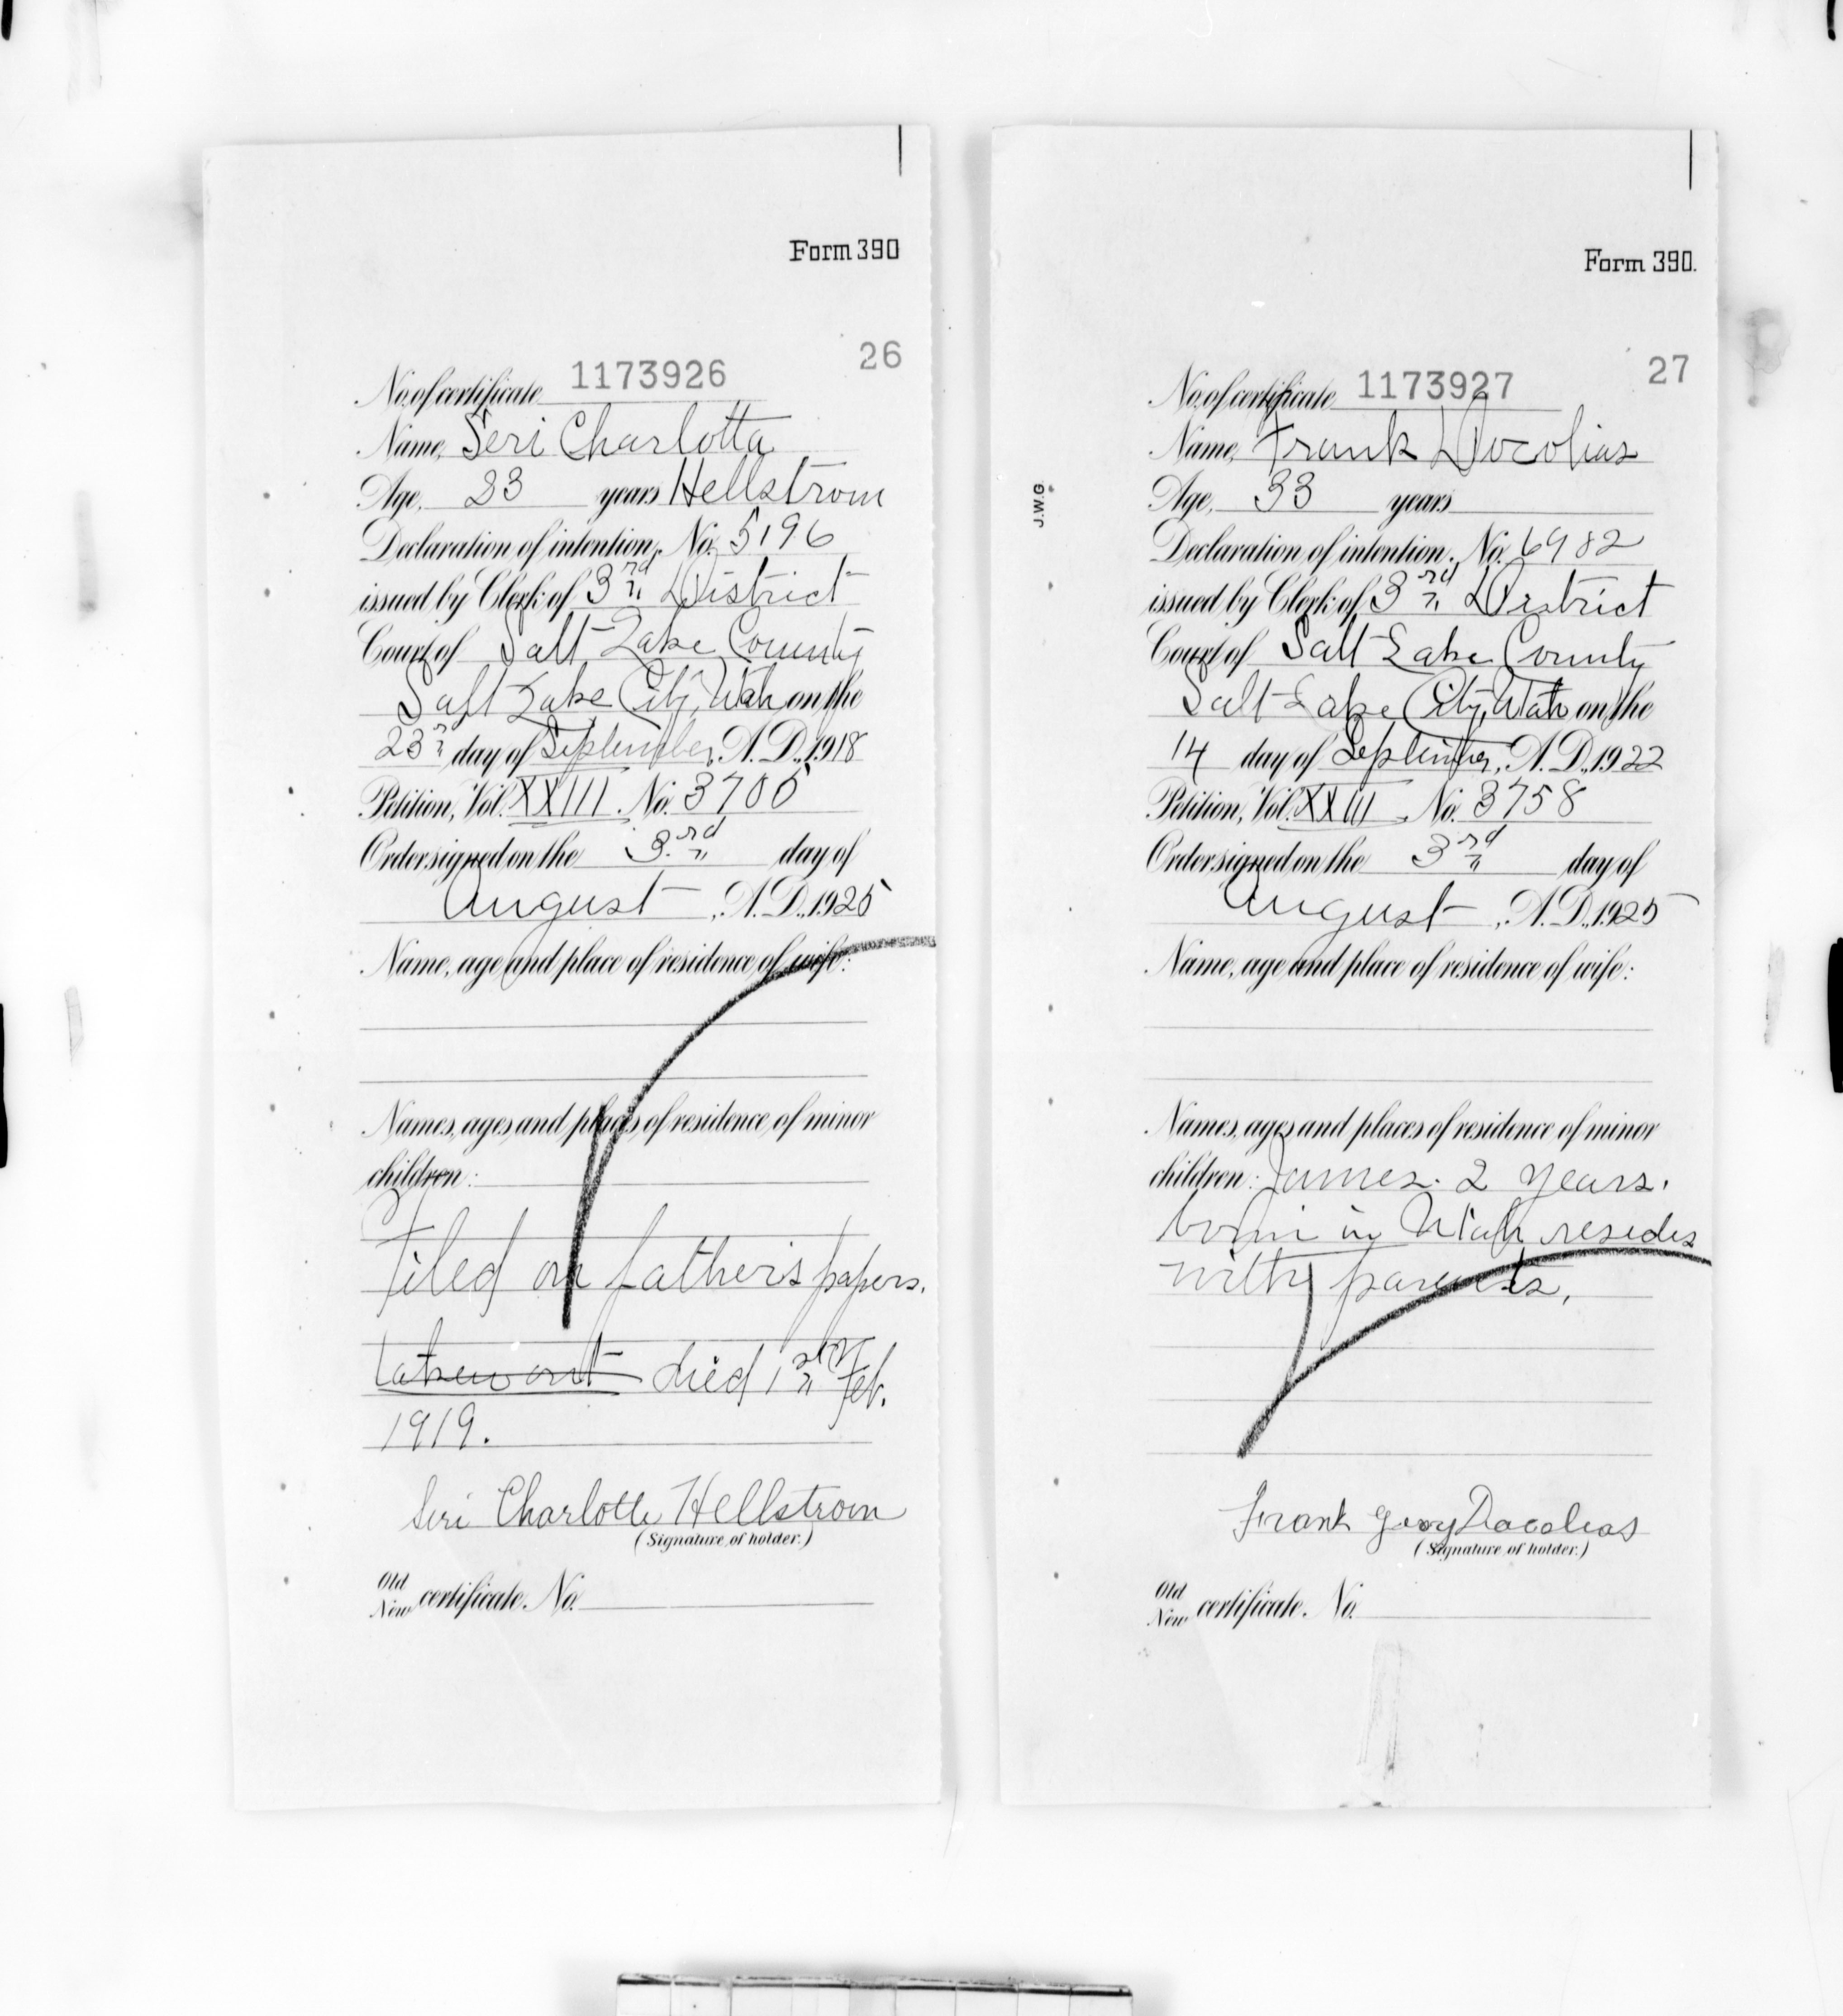 Form 390
26
No. of certificate 1173926
Name, Seri Charlotta
Age, 23 years Hellstrom
Declaration of intention, No. 5196
issued by Clerk of 3rd District
Court of Salt Lake County
Salt Lake City, Utah on the
23rd day of September, A.D., 1918
Petition, Vol. XXIII. No. 3705
Order signed on the 3rd day of
August, A.D., 1925
Name, age and place of residence of wife:
Names, ages and places of residence of minor
children:
Filed on father's papers.
died 1st Feb.
1919.
Seri Charlotte Hellstrom
(Signature of holder.)
Old
New certificate. No.
Form 390.
27
No. of certificate 1173927
Name, Frank Docolias
Age, 33 years
Declaration of intention, No. 6982
issued by Clerk of 3rd District
Court of Salt Lake County
Salt Lake City, Utah on the
14 day of September, A.D., 1922
Petition, Vol. XXIII, No. 3758
Order signed on the 3rd day of
August, A.D., 1925
Name, age and place of residence of wife:
Names, ages and places of residence of minor
children: James. 2 years.
born in Utah resides
with parents,
Frank Dacolias
(Signature of holder.)
Old
New certificate. No.
J.W.G.